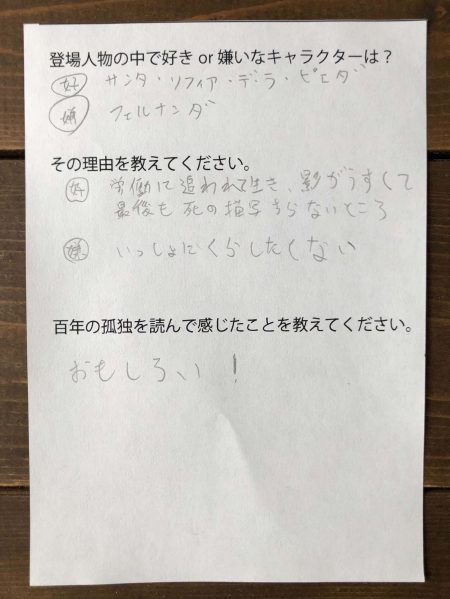 登場人物の中で好き or 嫌いなキャラクターは？
好 サンタ・ソフィア・デ・ラ・ピエダ
嫌 フェルナンダ
その理由を教えてください。
好 労働に追われて生き、影がうすくて
最後も死の描写すらないところ
嫌 いっしょにくらしたくない
百年の孤独を読んで感じたことを教えてください。
おもしろい！